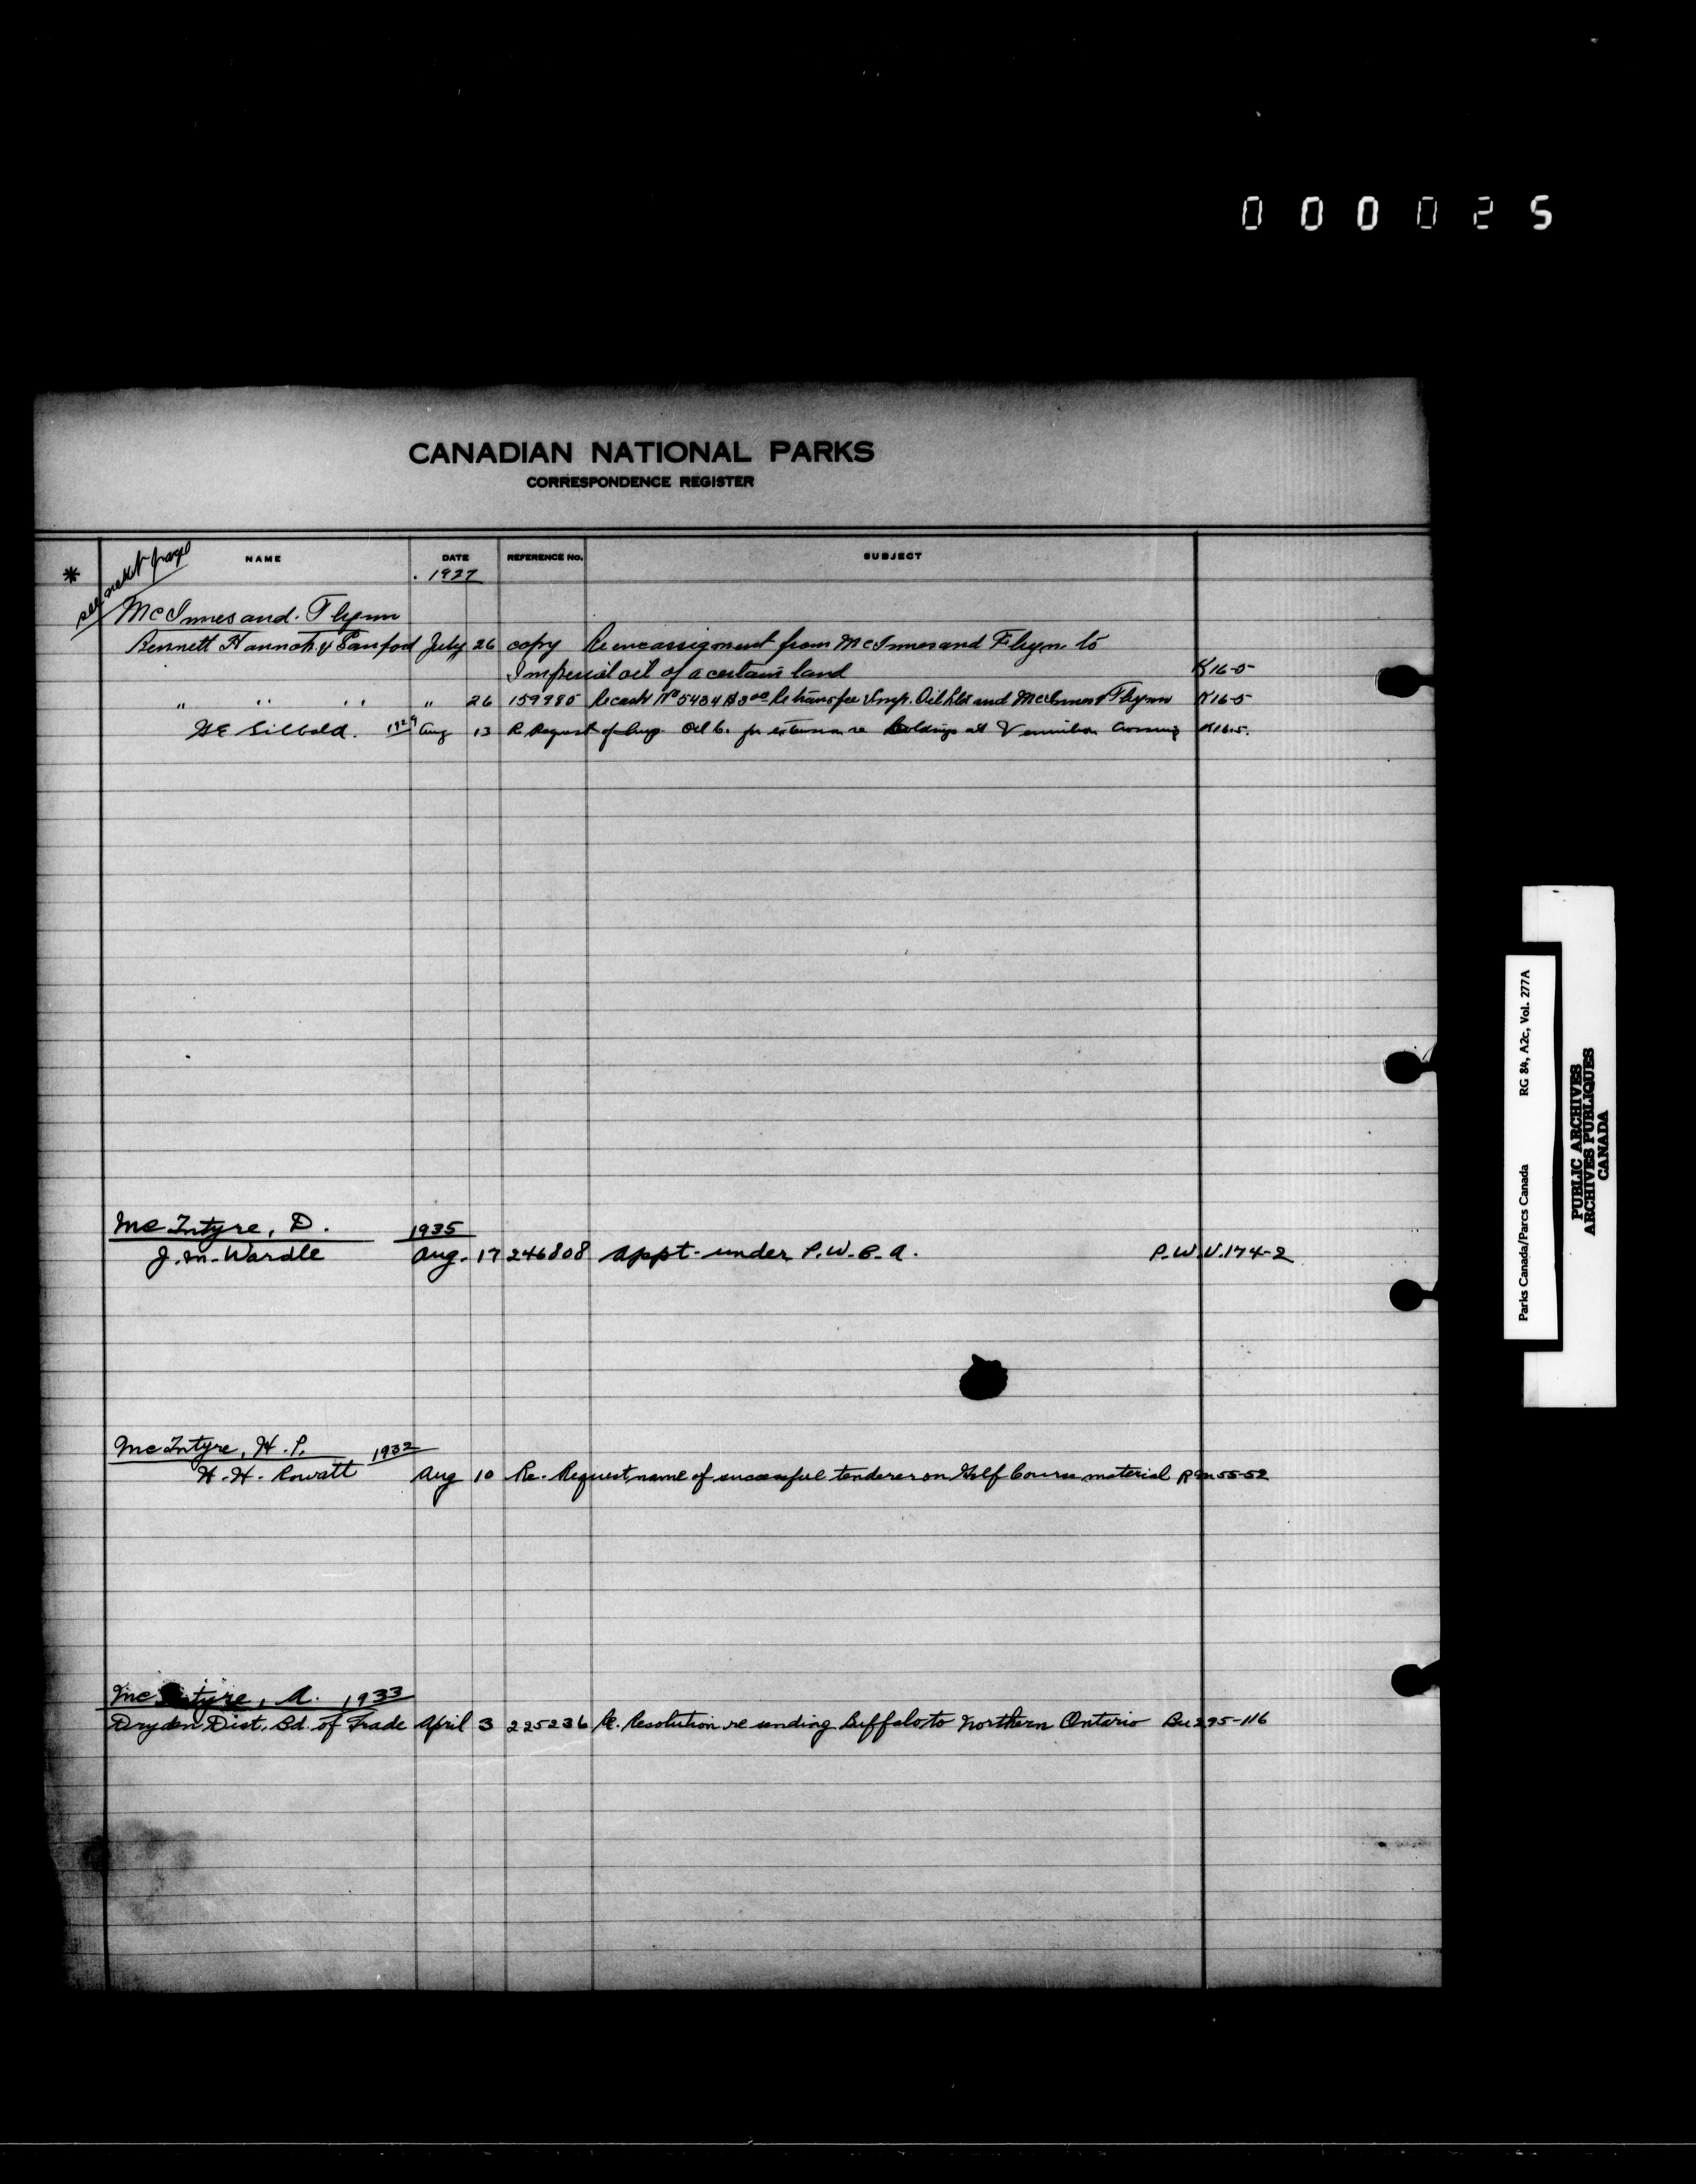 000025
CANADIAN NATIONAL PARKS
CORRESPONDENCE REGISTER
* see next page
NAME DATE REFERENCE NO. SUBJECT
1927
McInnes and Flynn
Bennett Hannah & Sanford July 26 copy Re assignment from McInnes and Flynn to
Imperial oil of a certain land K16-5
" " " " 26 159980 Re cash No 5434 $3.00 Re transfer Imp. Oil Ltd and McInnes & Flynn K16-5
Sibbald. 1929 Aug 13 R Request of Imp. Oil Co. for extension re Holdings at Vermilion Crossing K16-5.
McIntyre, D. 1935
J.M. Wardle Aug. 17 246808 Appt. under P.W.C.A. P.W.U.174-2
McIntyre, H.P. 1932
H.H. Rowatt Aug 10 Re. Request name of successful tenderer on Golf Course material RM55-52
McIntyre, A. 1933
Dryden Dist. Bd. of Trade April 3 225236 Re. Resolution re sending Buffalo to Northern Ontario Bu295-116
Parks Canada/Parcs Canada RG 84, A2c, Vol. 277A
PUBLIC ARCHIVES
ARCHIVES PUBLIQUES
CANADA